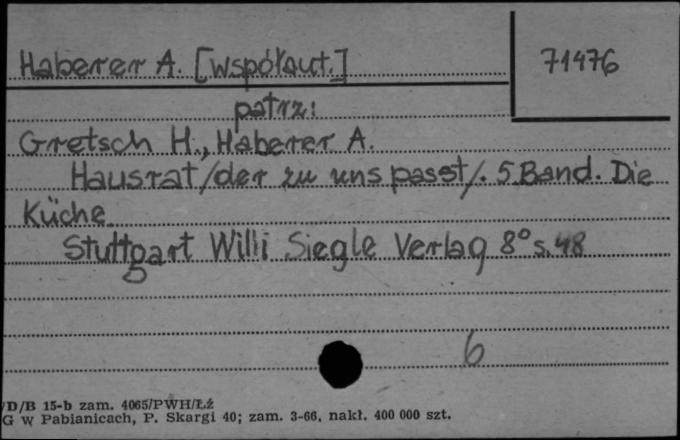 Haberer A. [współaut.]
71476
patrz:
Gretsch H., Haberer A.
Hausrat /der zu uns passt/. 5.Band. Die
Küche
Stuttgart Willi Siegle Verlag 8° s. 48
6
/D/B 15-b zam. 4065/PWH/Łź
G w Pabianicach, P. Skargi 40; zam. 3-66, nakł. 400 000 szt.